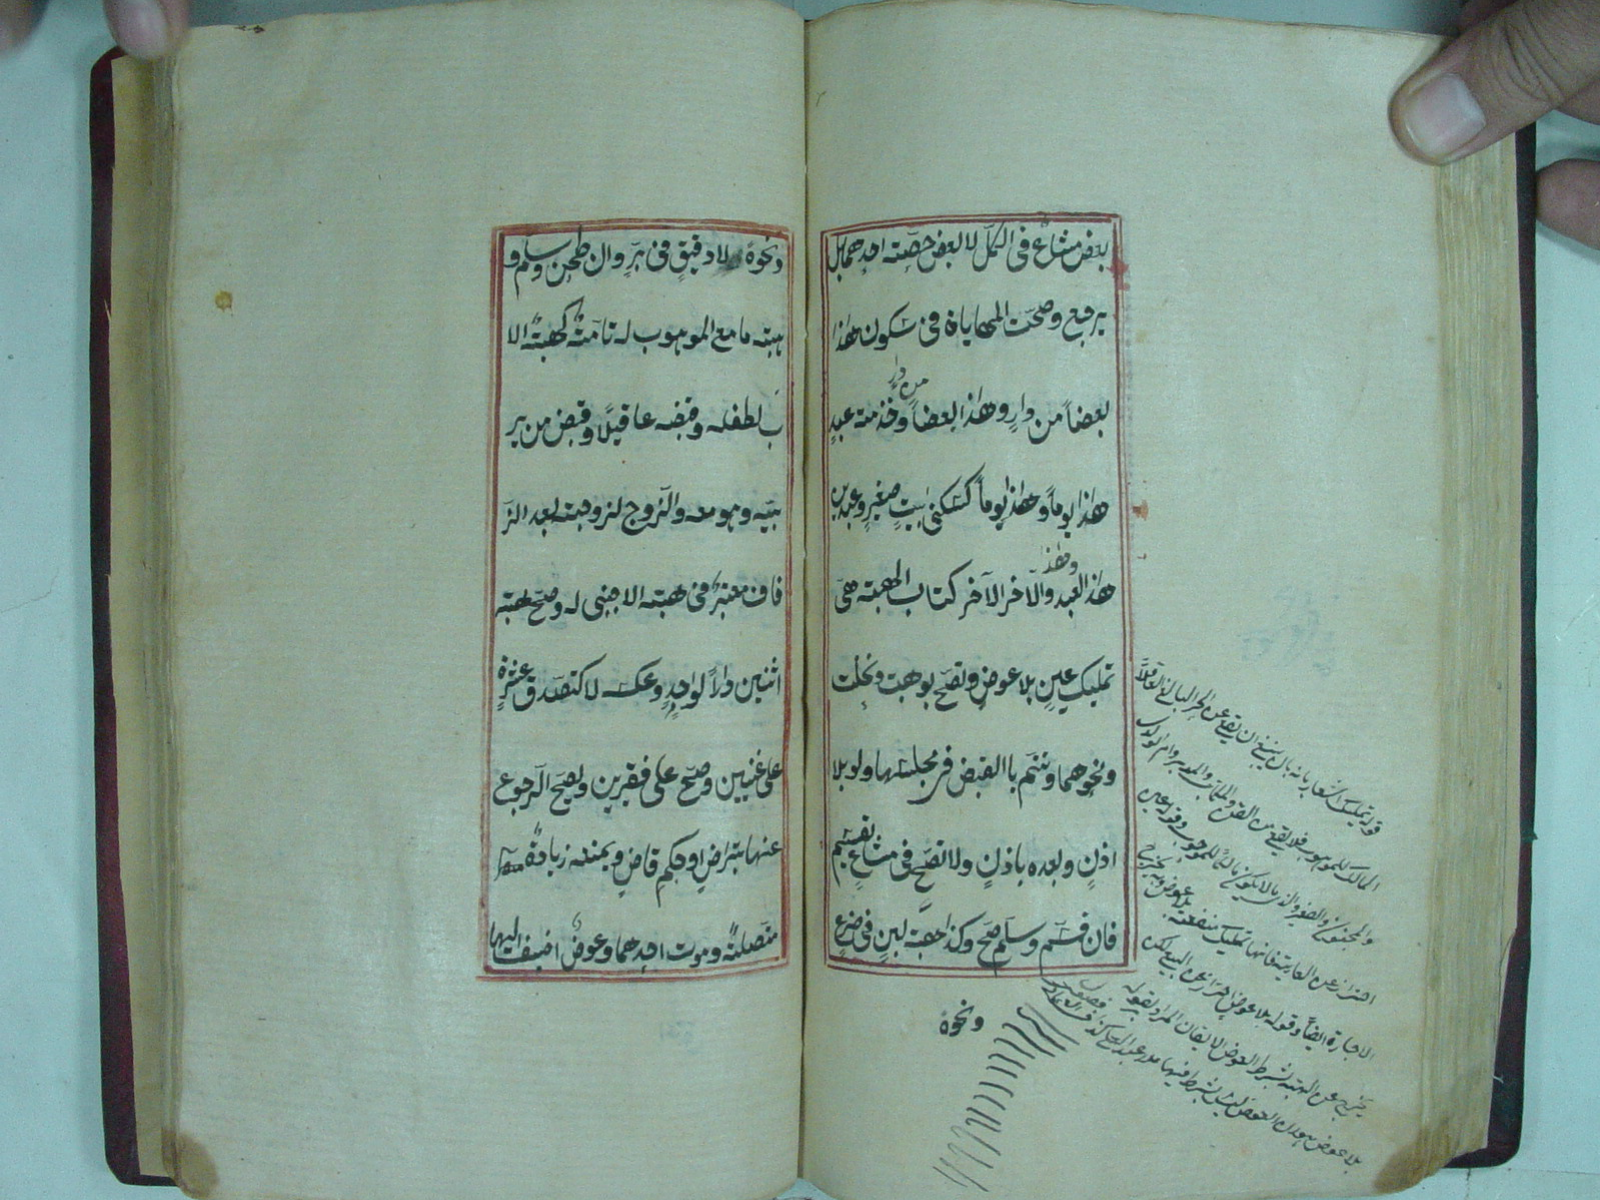 بعض مشاع فى الكل لا لبعض حصته احدهما بل
يرفع وصحت المهاياة فى سكون هذا
من دار
بعضاً من دارٍ وهذا بعضاً وخدمته عبدٍ
هذا يوماً وهذا يوماً كسكنى بيتٍ صغيرٍ وعبدين
وهذا
هذا العبد والآخر الآخر كتاب الهبة هى
تمليك عينٍ بلا عوضٍ وتصح بوهبت ونحلت
ونحوهما وتتم باالقبض فى مجلسها ولو بلا
اذنٍ وبعده باذنٍ ولا تصح فى مشاعٍ يقسم
فان قسم وسلم صح وكذا هبة لبنٍ فى ضرعٍ
ونحوه
قوله تمليك
بانه
ينبغى ان يقع من الحر البالغ العاقل
المالك للموهوب فلا يقع من القن والمكاتب والمدبر وام الولد
والمجنون والصغير والذى لا يكون مالكا للموهوب وقوله عين
احتراز عن العارية فانها تمليك منفعته بلا عوض ويخرج
الاجارة ايضاً وقوله بلا عوض احتراز عن البيع لكن
يخرج عن الهبة بشرط العوض الا يقال المراد بقوله
بلا عوض
العوض ليس بشرط فيها
ونحوه لا دقيقٍ فى برٍ وان طحن وسلم و
هبته ما مع الموهوب له تامةٌ كهبة الا
ب لطفله وقبضه عاقلاً وقبض من ير
بيه وهو معه والزوج لزوجته بعد الز
فاف معتبرٌ فى هبته الاجنبى له وصح هبة
اثنين داراً لواحدٍ وعكسه لا كتصدق عشرةٍ
على غنيين وصح على فقيرين ويصح الرجوع
عنها بتراضٍ او حكم قاضٍ ويمنعه زيادةٌ
متصلةٌ وموت احدهما وعوضٌ اضيف اليها